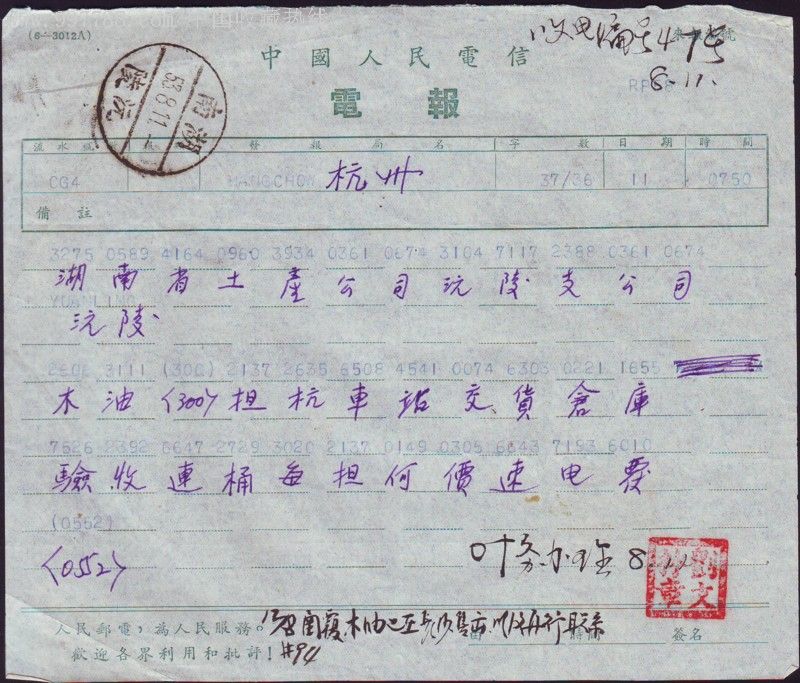 (6—3012A)
中國人民電信
收电编号47号
8.11.
電報
湖南
53.8.11.
沅陵
流水號 發報局名 字數 日期 時間
CG4 HANGCHOW 杭州 37/36 11 0750
備註
3275 0589 4164 0960 3934 0361 0674 3104 7117 2388 0361 0674
湖南省土產公司沅陵支公司
YUANLING
沅陵
2606 3111 (300) 2137 2635 6508 4541 0074 6303 0221 1655
木油〈300〉担杭車站交貨倉庫
7526 2392 6647 2729 3020 2137 0149 0305 6643 7193 6010
驗收連桶每担何價速电
(0552)
〈0552〉
8.11
劉文
章
人民郵電，為人民服務。
歡迎各界利用和批評！
#94
簽名